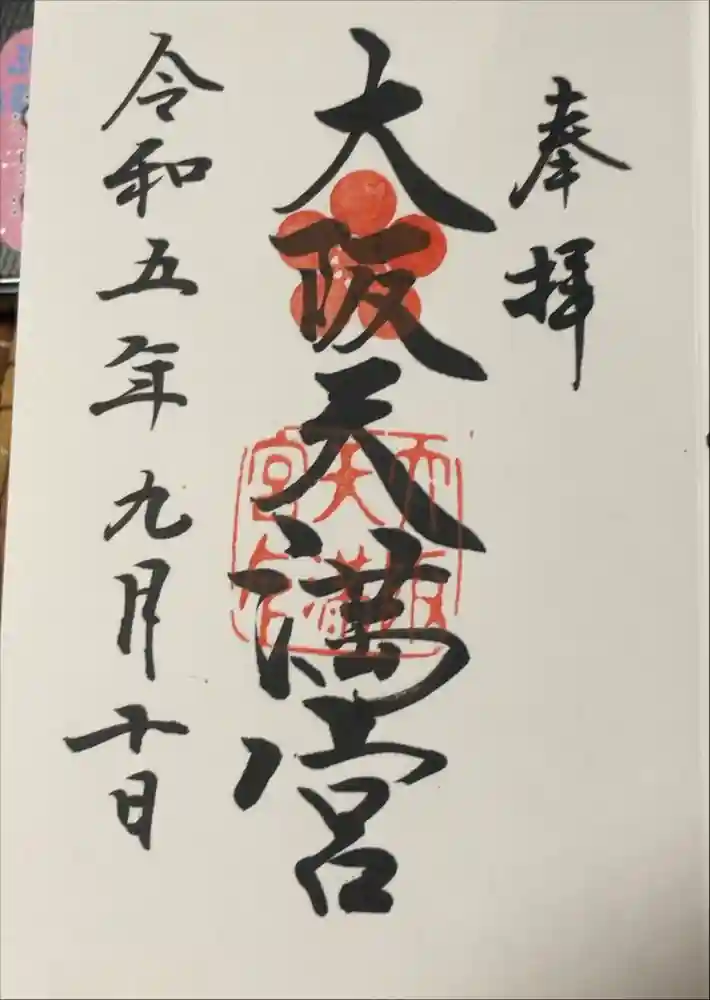 奉拝
大阪天満宮
大阪天満宮印
令和五年九月十日